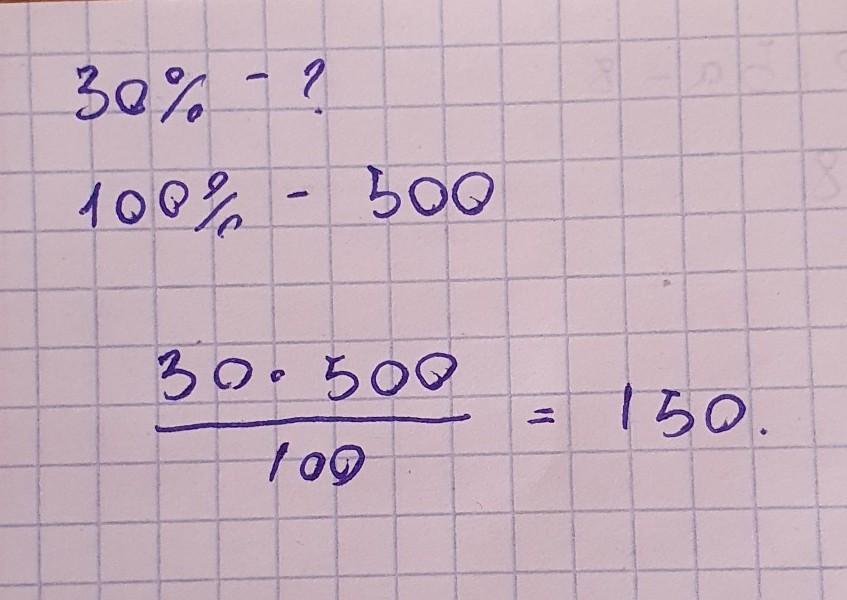 30% - ?
100% - 500
30 · 500
100
= 150.